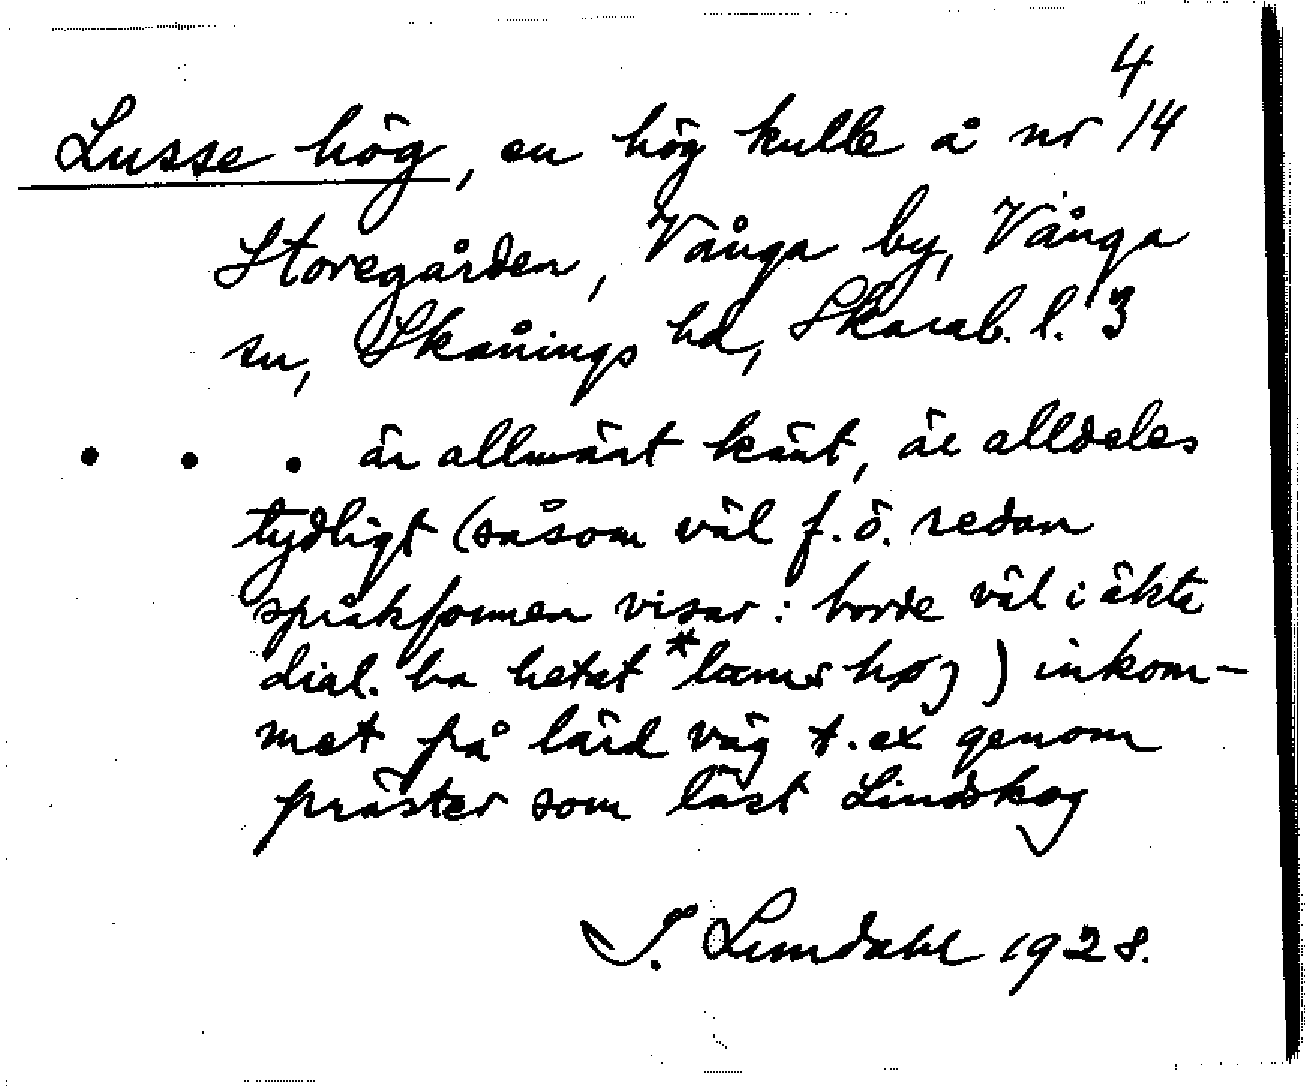 4
Lusse hög, en hög kulle å nr 14
Storegården, Vånga by, Vånga
sn, Skånings hd, Skarab. l. 3
. . . är allmänt känt, är alldeles
tydligt (såsom väl f. ö. redan
språkformen visar: borde väl i äkta
dial. ha hetat * høg) inkom-
met på lärd väg t. ex genom
präster som läst Lindskog
J. Lindahl 1928.